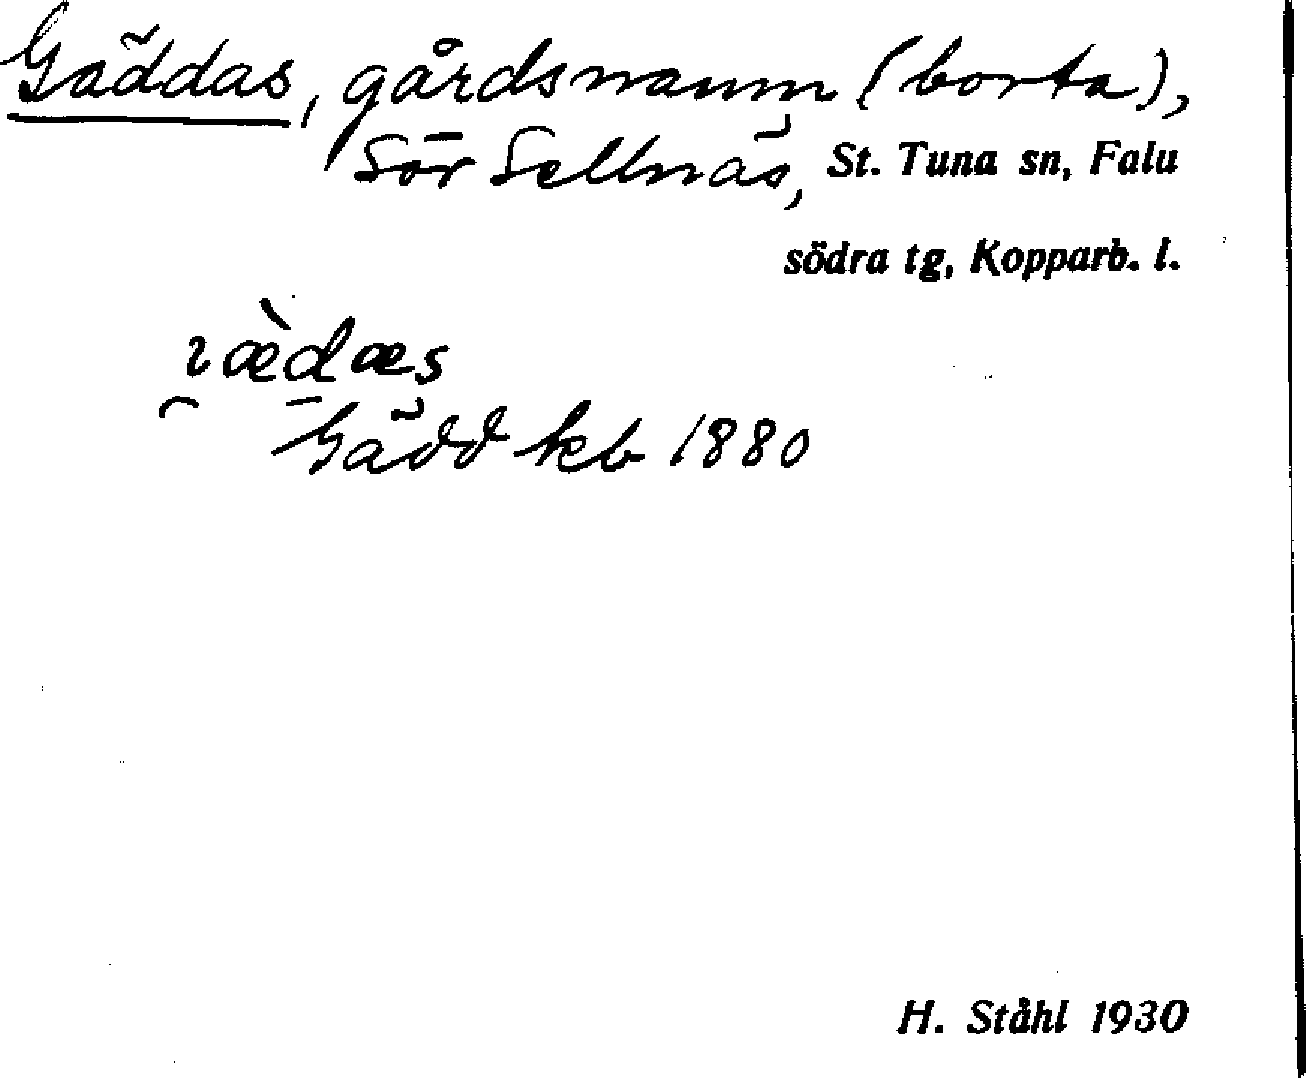 Gäddas, gårdsnamn (borta),
Sör Sellnäs, St. Tuna sn, Falu
södra tg, Kopparb. l.
Gädd kb 1880
H. Ståhl 1930